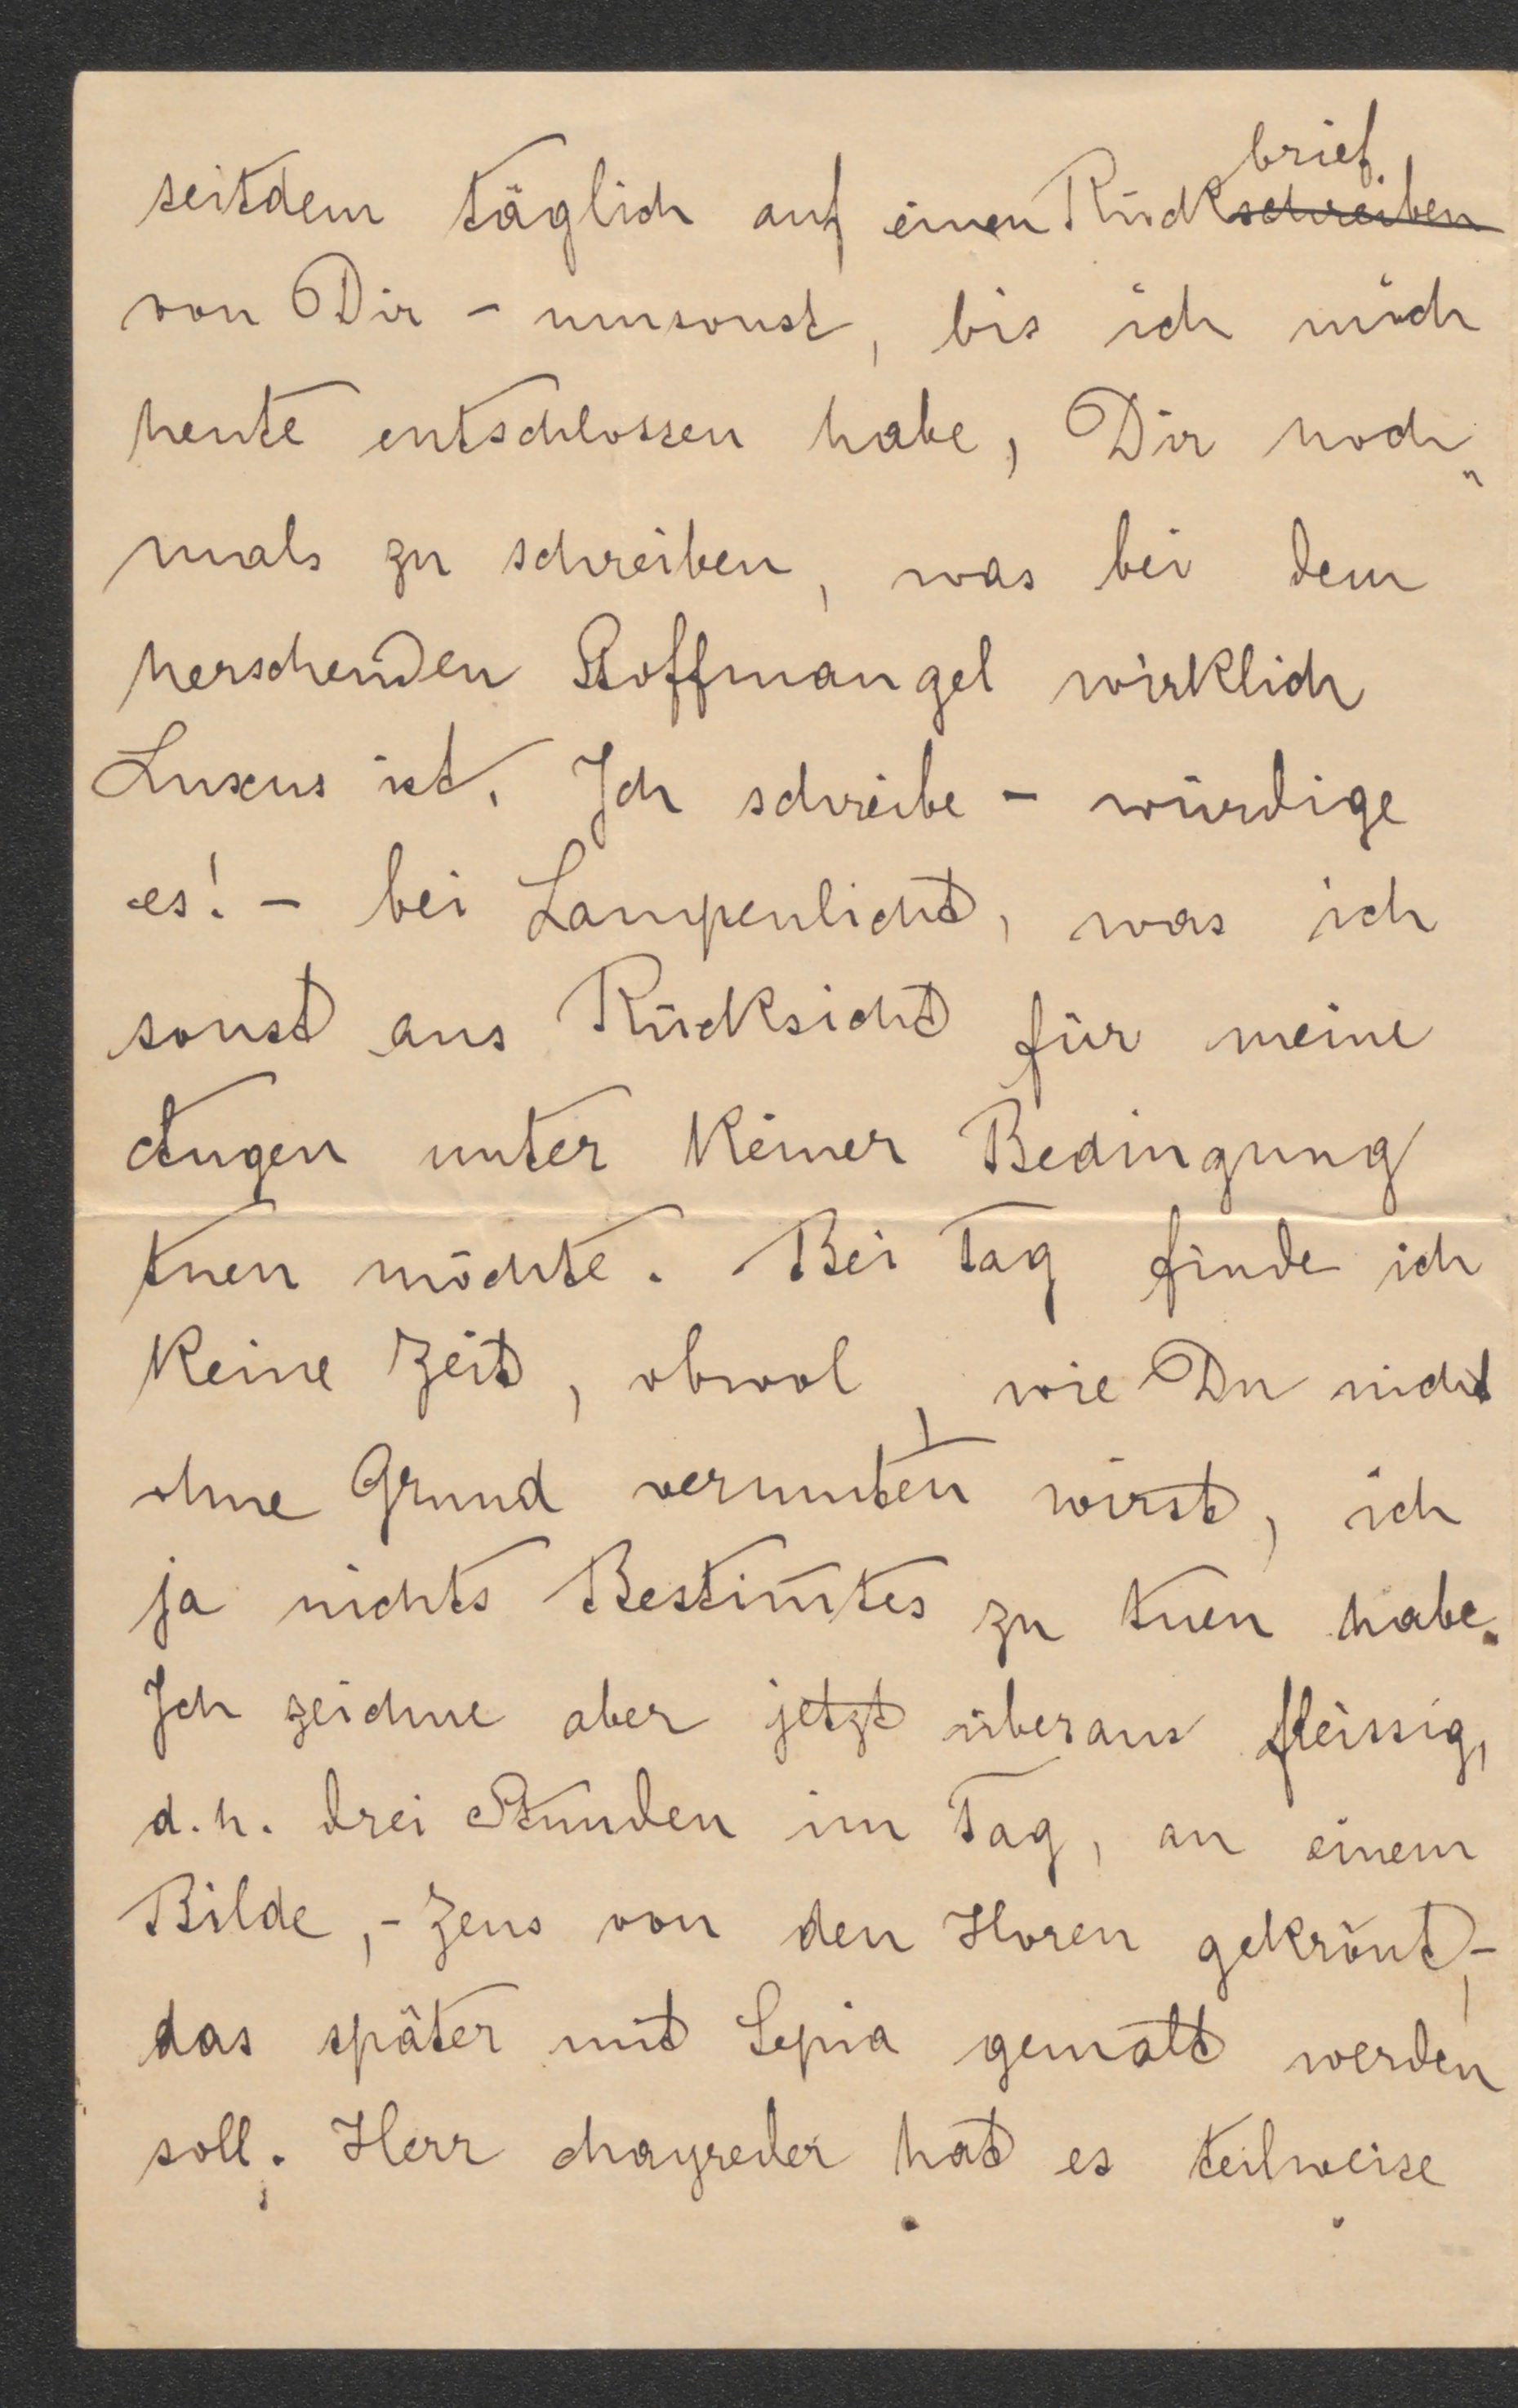 seitdem täglich auf einen Rückschreiben brief
von Dir - umsonst, bis ich mich
heute entschlossen habe, Dir noch„
mals zu schreiben, was bei dem
herschenden Stoffmangel wirklich
Luxus ist. Ich schreibe - würdige
es! - bei Lampenlicht, was ich
sonst aus Rücksicht für meine
Augen unter keiner Bedingung
tuen möchte. Bei Tag finde ich
keine Zeit, obwol, wie Du nicht
ohne Grund vermuten wirst, ich
ja nichts Bestim̄tes zu tuen habe.
Ich zeichne aber jetzt überaus fleissig,
d. h. drei Stunden im Tag, an einem
Bilde, - Zeus von den Horen gekrönt, -
das später mit Sepia gemalt werden
soll. Herr Mayreder hat es teilweise